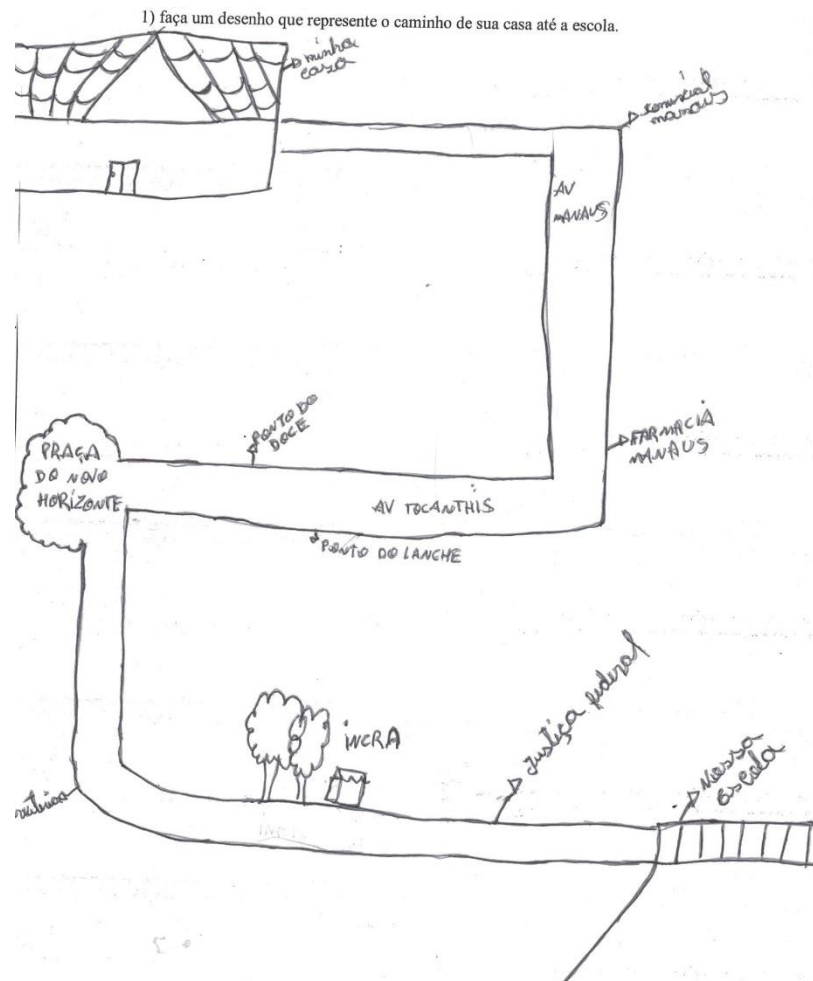 1) faça um desenho que represente o caminho de sua casa até a escola.
minha
casa
manaus
AV
MANAUS
PONTO DO
DOCE
FARMACIA
MANAUS
PRAÇA
DO NOVO
HORIZONTE
AV TOCANTHIS
PONTO DO LANCHE
Justiça federal
INCRA
Nossa
Escola